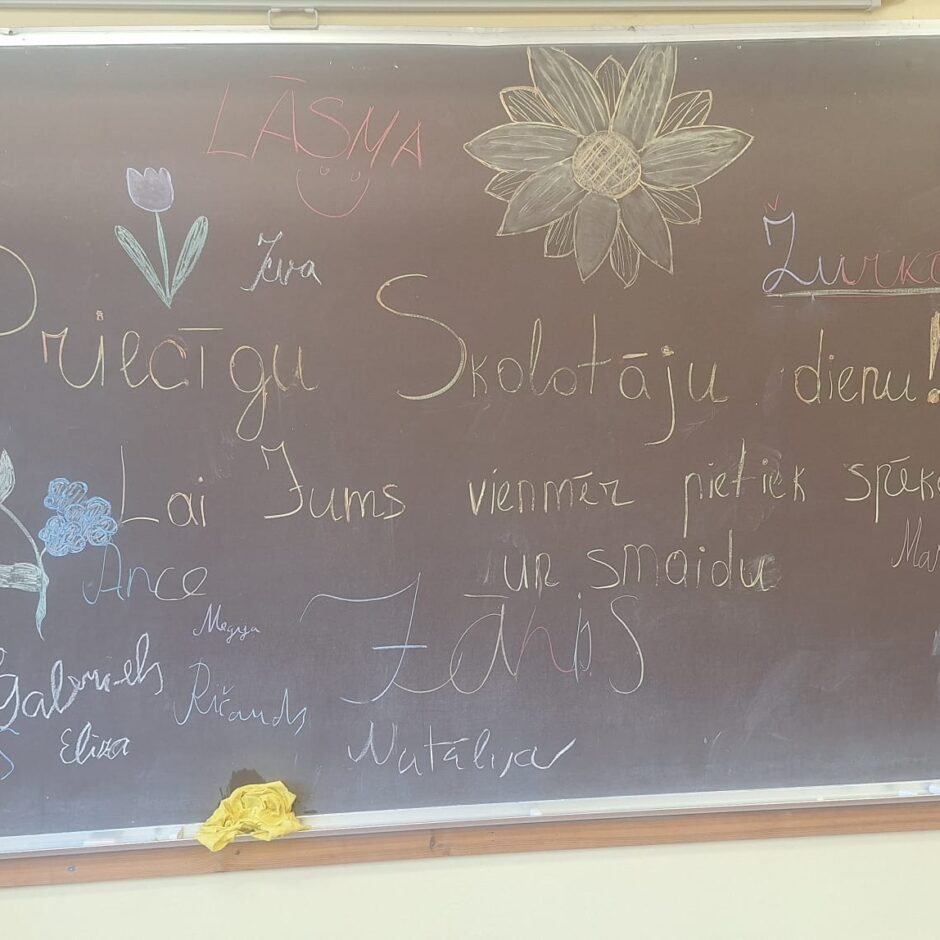 LĀSMA
Ieva
Priecīgu Skolotāju dienu!
Lai Jums vienmēr pietiek spēka
ur smaidu
Ance
Megija
Jānis
Gabriels
Ričards
Eliza
Natālija